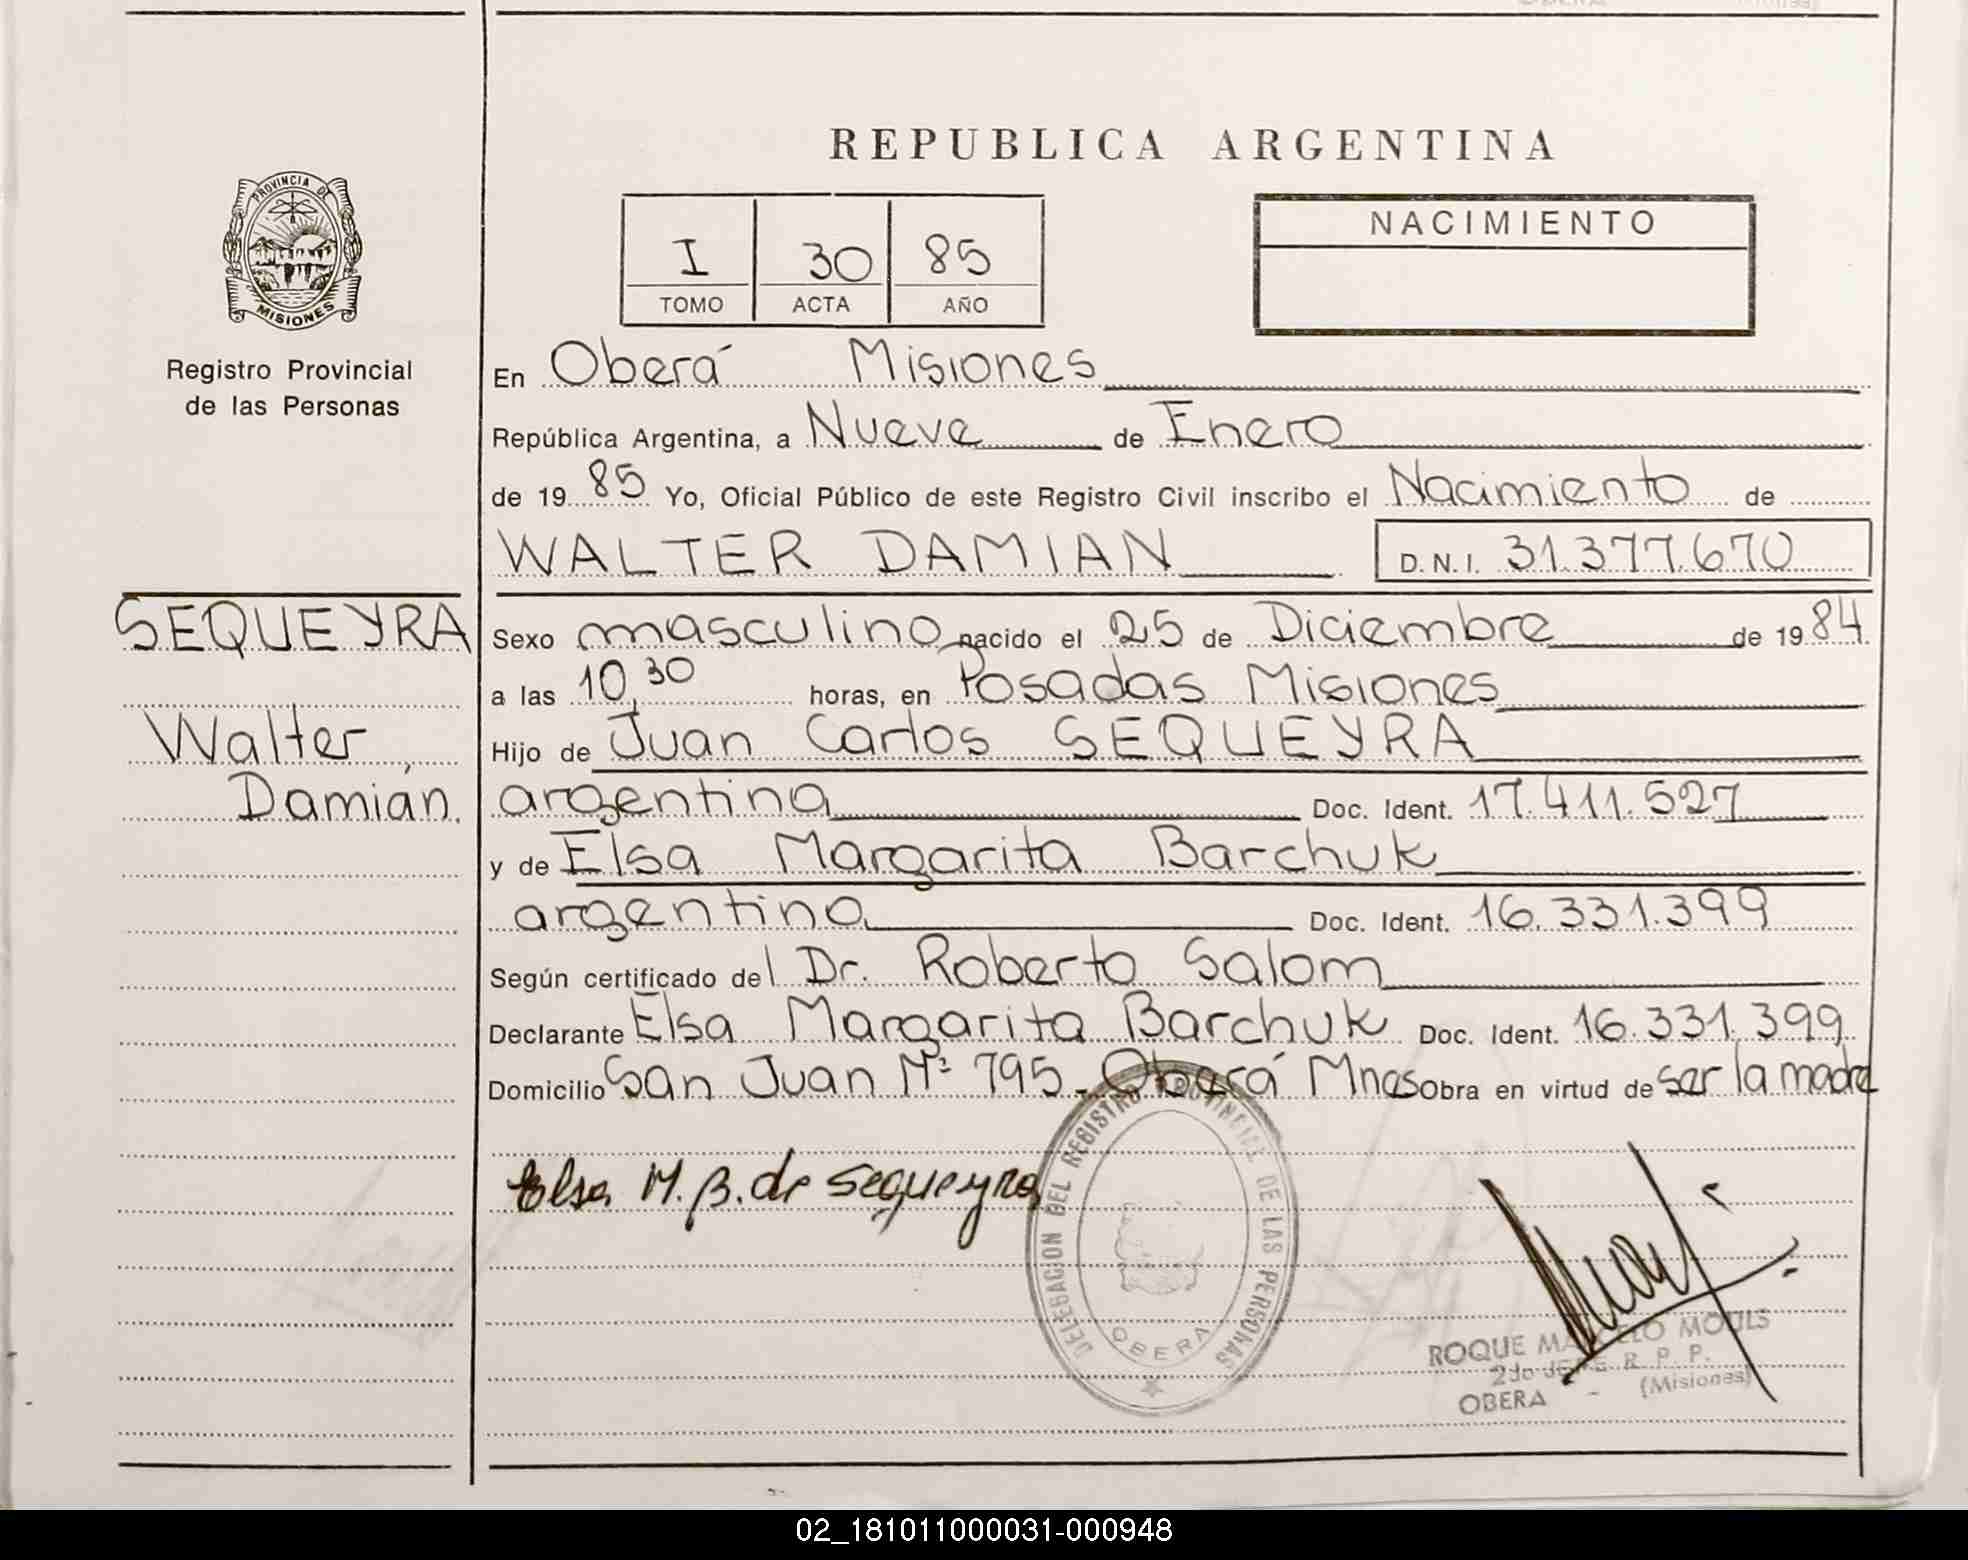 REPUBLICA ARGENTINA
PROVINCIA DE
MISIONES
Registro Provincial
de las Personas
SEQUEYRA
Walter
Damián.
I 30 85
TOMO ACTA AÑO
NACIMIENTO
En Oberá Misiones
República Argentina, a Nueve de Enero
de 19 85 Yo, Oficial Público de este Registro Civil inscribo el Nacimiento de
WALTER DAMIAN D.N.I. 31.377.670
Sexo masculino nacido el 25 de Diciembre de 19 84
a las 10,30 horas, en Posadas Misiones
Hijo de Juan Carlos SEQUEYRA
argentina Doc. Ident. 17.411.527
y de Elsa Margarita Barchuk
argentina Doc. Ident. 16.331.399
Según certificado del Dr. Roberto Salom
Declarante Elsa Margarita Barchuk Doc. Ident. 16.331.399
Domicilio San Juan Nº 795. Oberá Mnes Obra en virtud de ser la madre
Elsa M. B. de Sequeyra
DELEGACION DEL REGISTRO PROVINCIAL DE LAS PERSONAS
OBERA
ROQUE MARCELO MOULS
2do JEFE R. P. P.
OBERA - (Misiones)
02_181011000031-000948